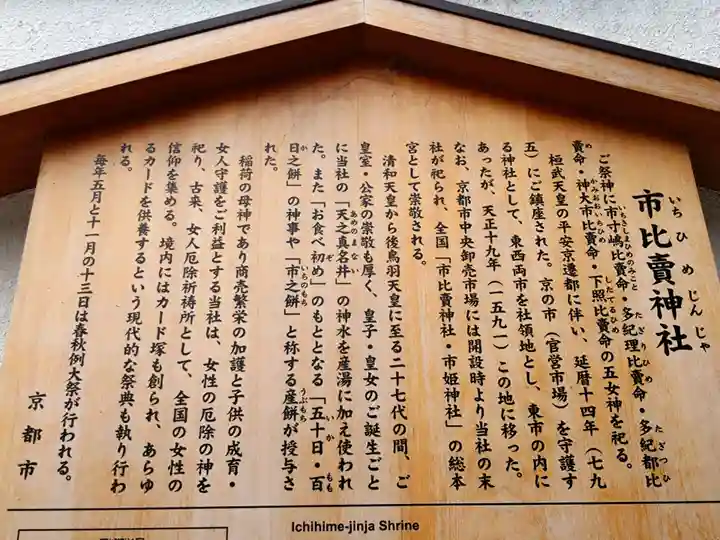 市比賣神社
ご祭神に市寸嶋比賣命・多紀理比賣命・多紀都比
賣命・神大市比賣命・下照比賣命の五女神を祀る。
桓武天皇の平安京遷都に伴い、延暦十四年（七九
五）にご鎮座された。京の市（官営市場）を守護す
る神社として、東西両市を社領地とし、東市の内に
あったが、天正十九年（一五九一）この地に移った。
なお、京都市中央卸売市場には開設時より当社の末
社が祀られ、全国「市比賣神社・市姫神社」の総本
宮として崇敬される。
清和天皇から後鳥羽天皇に至る二十七代の間、ご
皇室・公家の崇敬も厚く、皇子・皇女のご誕生ごと
に当社の「天之真名井」の神水を産湯に加え使われ
た。また「お食べ初め」のもととなる「五十日・百
日之餅」の神事や「市之餅」と称する産餅が授与さ
れた。
稲荷の母神であり商売繁栄の加護と子供の成育・
女人守護をご利益とする当社は、女性の厄除の神を
祀り、古来、女人厄除祈祷所として、全国の女性の
信仰を集める。境内にはカード塚も創られ、あらゆ
るカードを供養するという現代的な祭典も執り行わ
れる。
毎年五月と十一月の十三日は春秋例大祭が行われる。
京都市
Ichihime-jinja Shrine